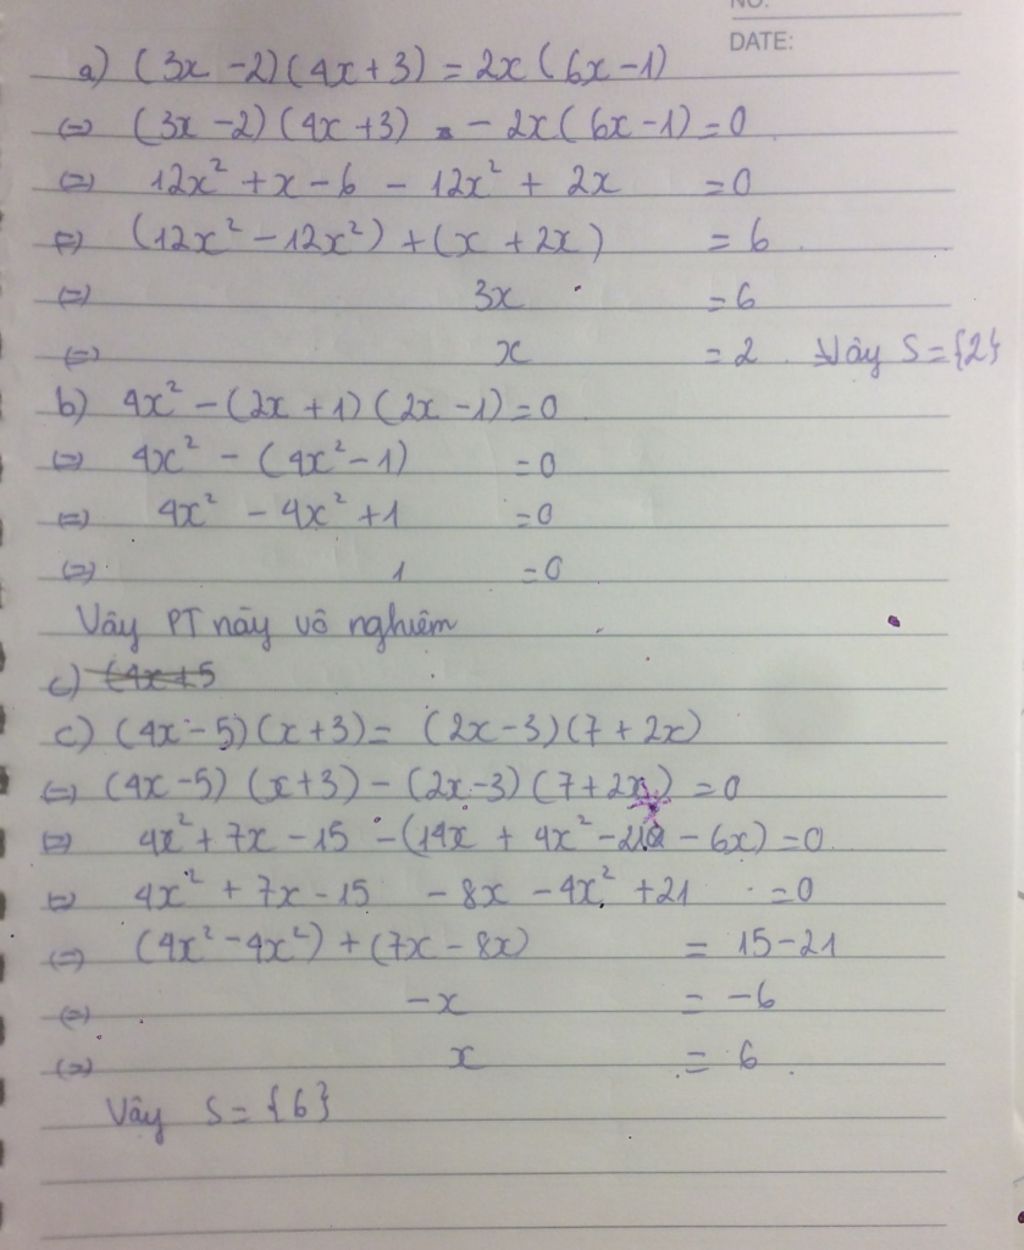 NO.
DATE:
a) (3x - 2)(4x + 3) = 2x (6x - 1)
(=) (3x - 2)(4x + 3) - 2x(6x - 1) = 0
(=) 12x² + x - 6 - 12x² + 2x = 0
(=) (12x² - 12x²) + (x + 2x) = 6
(=) 3x = 6
(=) x = 2 Vây S = {2}
b) 4x² - (2x + 1)(2x - 1) = 0
(=) 4x² - (4x² - 1) = 0
(=) 4x² - 4x² + 1 = 0
(=) 1 = 0
Vây PT này vô nghiêm
c) (4x + 5
c) (4x - 5)(x + 3) = (2x - 3)(7 + 2x)
(=) (4x - 5)(x + 3) - (2x - 3)(7 + 2x) = 0
(=) 4x² + 7x - 15 - (14x + 4x² - 21 - 6x) = 0
(=) 4x² + 7x - 15 - 8x - 4x² + 21 = 0
(=) (4x² - 4x²) + (7x - 8x) = 15 - 21
(=) -x = -6
(=) x = 6
Vây S = {6}